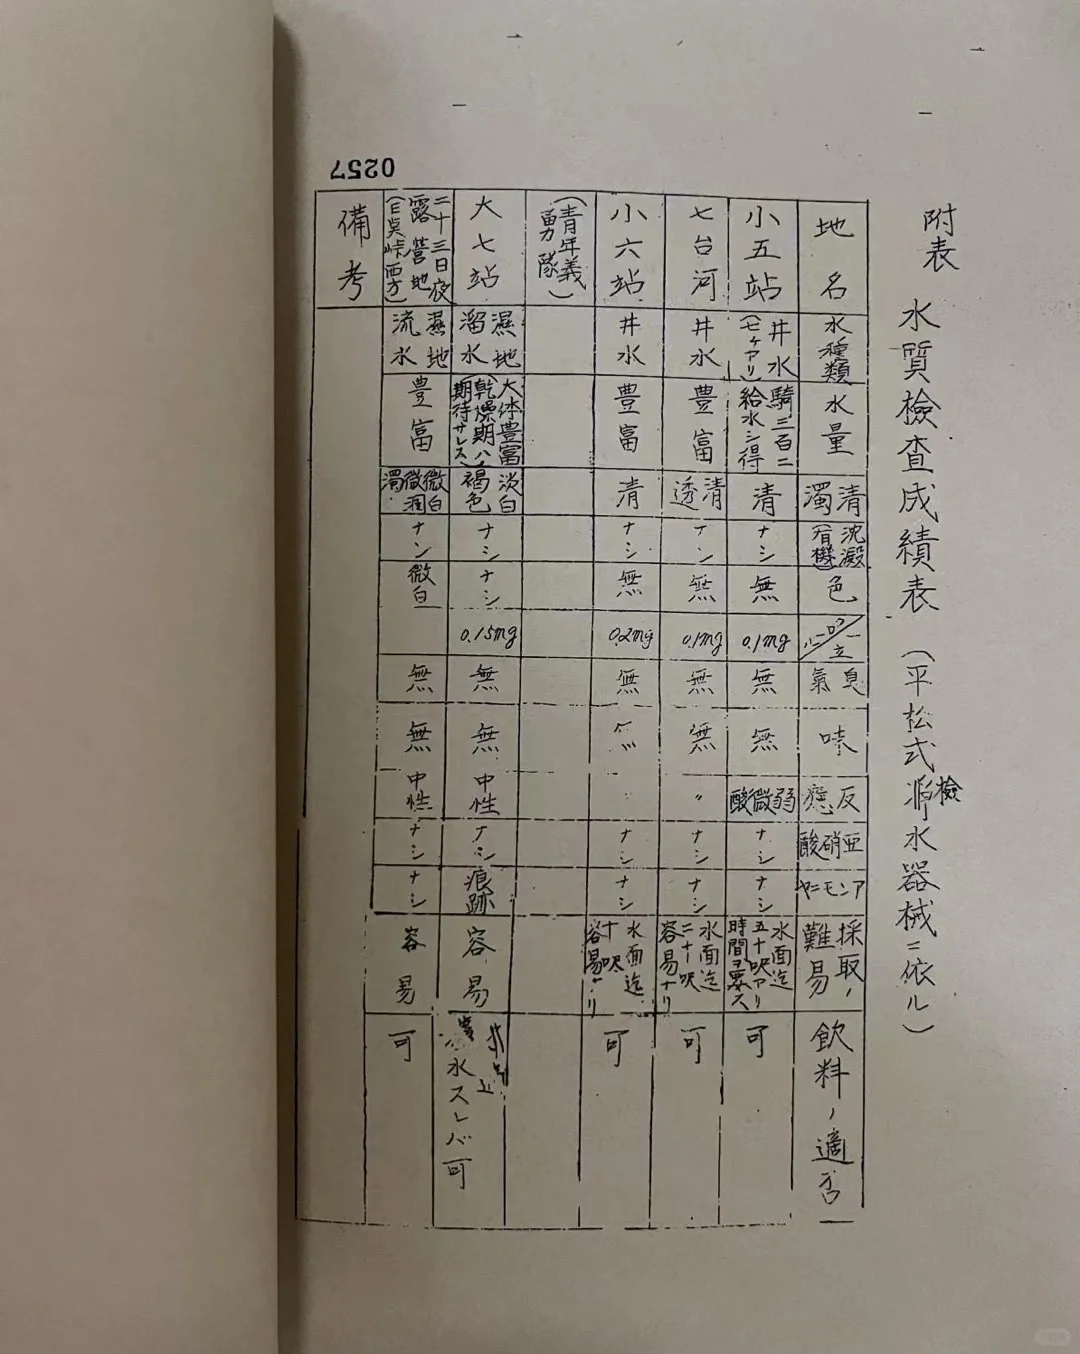 附表
水質檢査成績表(平松式檢水器械ニ依ル)
地名
水種類
水量
清濁
沈澱(有機)
色
一立
臭氣
味
反應
亜硝酸
アンモニヤ
採取ノ難易
飲料ノ適否
小五站
井水(七ケアリ)
騎三百ニ給水シ得
清
ナシ
無
0.1mg
無
無
弱微酸
ナシ
ナシ
水面迄五十呎アリ時間ヲ要ス
可
七台河
井水
豊富
清透
ナシ
無
0.1mg
無
無
〃
ナシ
ナシ
水面迄二十呎容易ナリ
可
小六站
井水
豊富
清
ナシ
無
0.2mg
無
ナシ
ナシ
水面迄十呎容易ナリ
可
(青年義勇隊)
大七站
濕地溜水
大体豊富(乾燥期ハ期待サレズ)
淡白褐色
ナシ
ナシ
0.15mg
無
無
中性
ナシ
痕跡
容易
水スレバ可
二十三日夜露営地(西方)
濕地流水
豊富
微白微濁
ナシ
微白
無
無
中性
ナシ
ナシ
容易
可
備考
0257